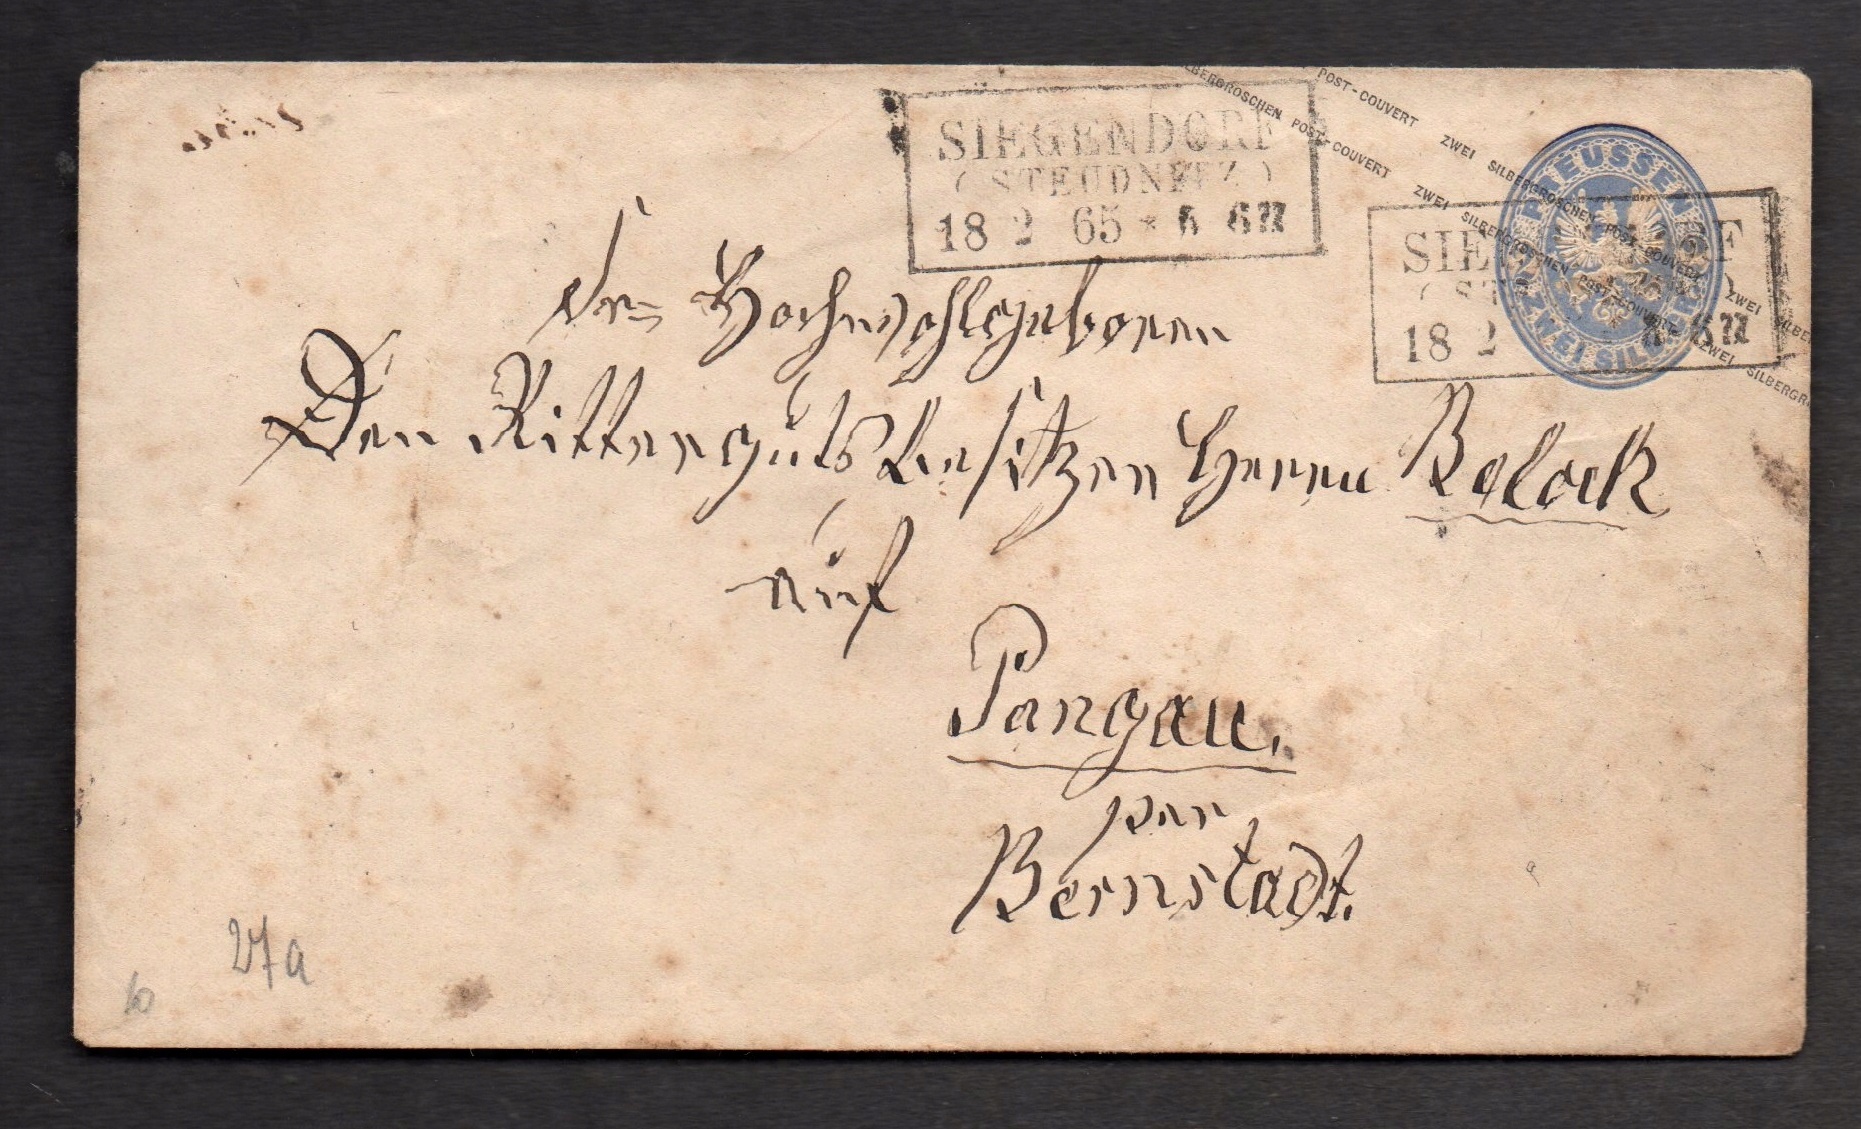 SIEGENDORF
(STEUDNITZ)
18 2 65 * 5 6 N
POST-COUVERT ZWEI SILBERGROSCHEN POST-COUVERT ZWEI SILBE
SILBERGROSCHEN POST-COUVERT ZWEI SILBERGROSCHEN POST-COUVERT ZWEI SILBERGR
PREUSSEN
ZWEI SILBERGR.
SIE F
(ST )
18 2 6 N
Sr= Hochwohlgeboren
Den Rittergutsbesitzer Herrn Belock
auf
Pangau.
per
Bernstadt.
27a